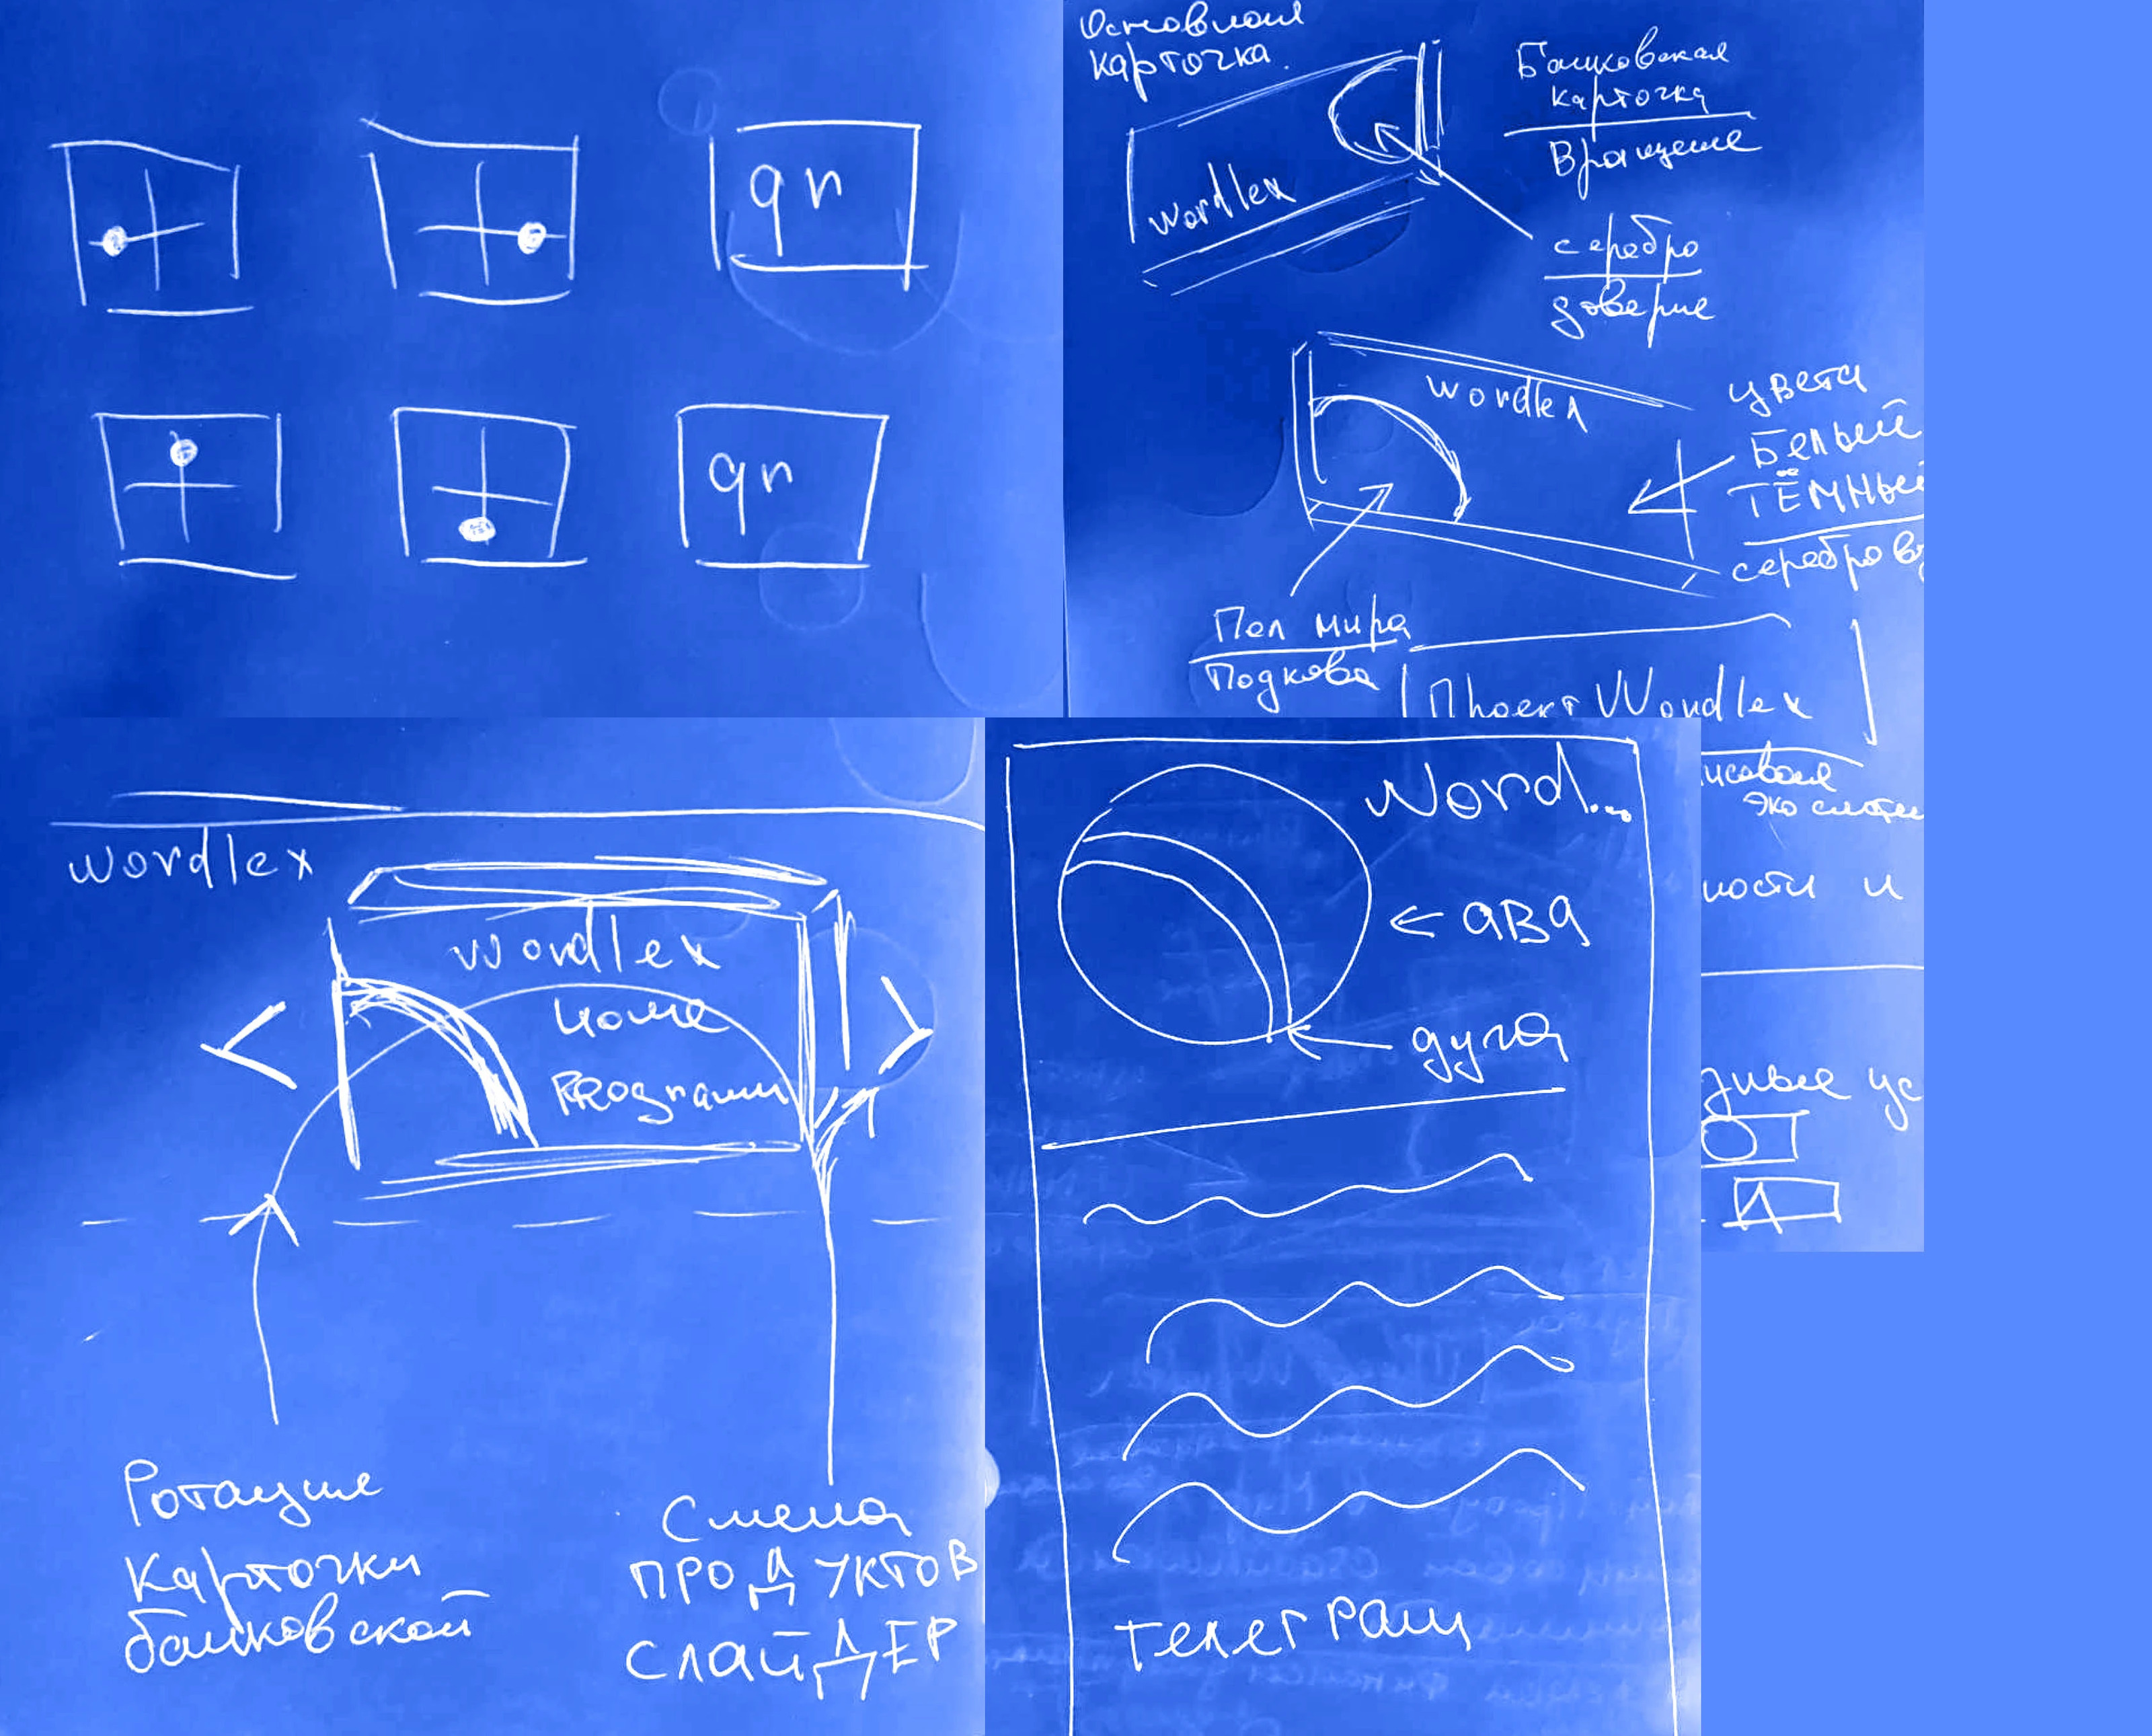 qr
qr
Основная
карточка.
Wordlex
Банковская
карточка
Вращение
серебро
доверие
wordlex
цвета
Белый
ТЁМНЫЙ
серебро
Пол мира
Подкова
Проект Wordlex
ности и
wordlex
Wordlex
Home
PROgramm
Ротация
Карточки
банковской
Смена
ПРОДУКТОВ
СЛАЙДЕР
Word...
← ава
дуга
Телеграм